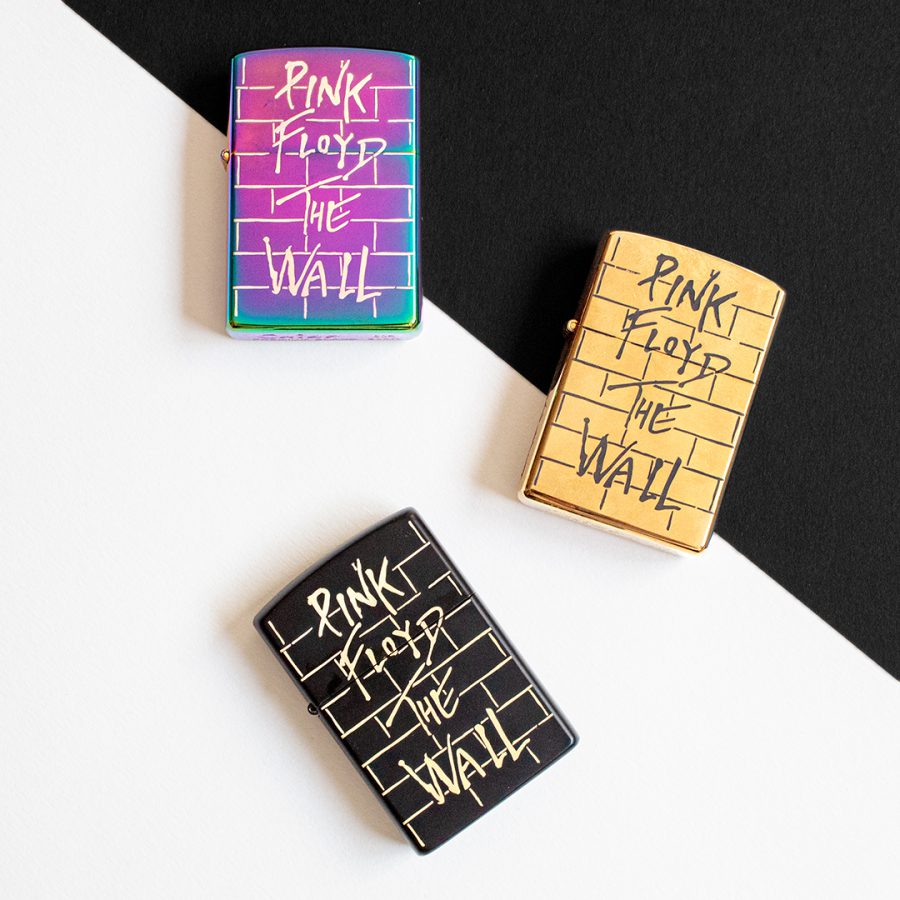 PINK
FLOYD
THE
WALL
PINK
FLOYD
THE
WALL
PINK
FLOYD
THE
WALL